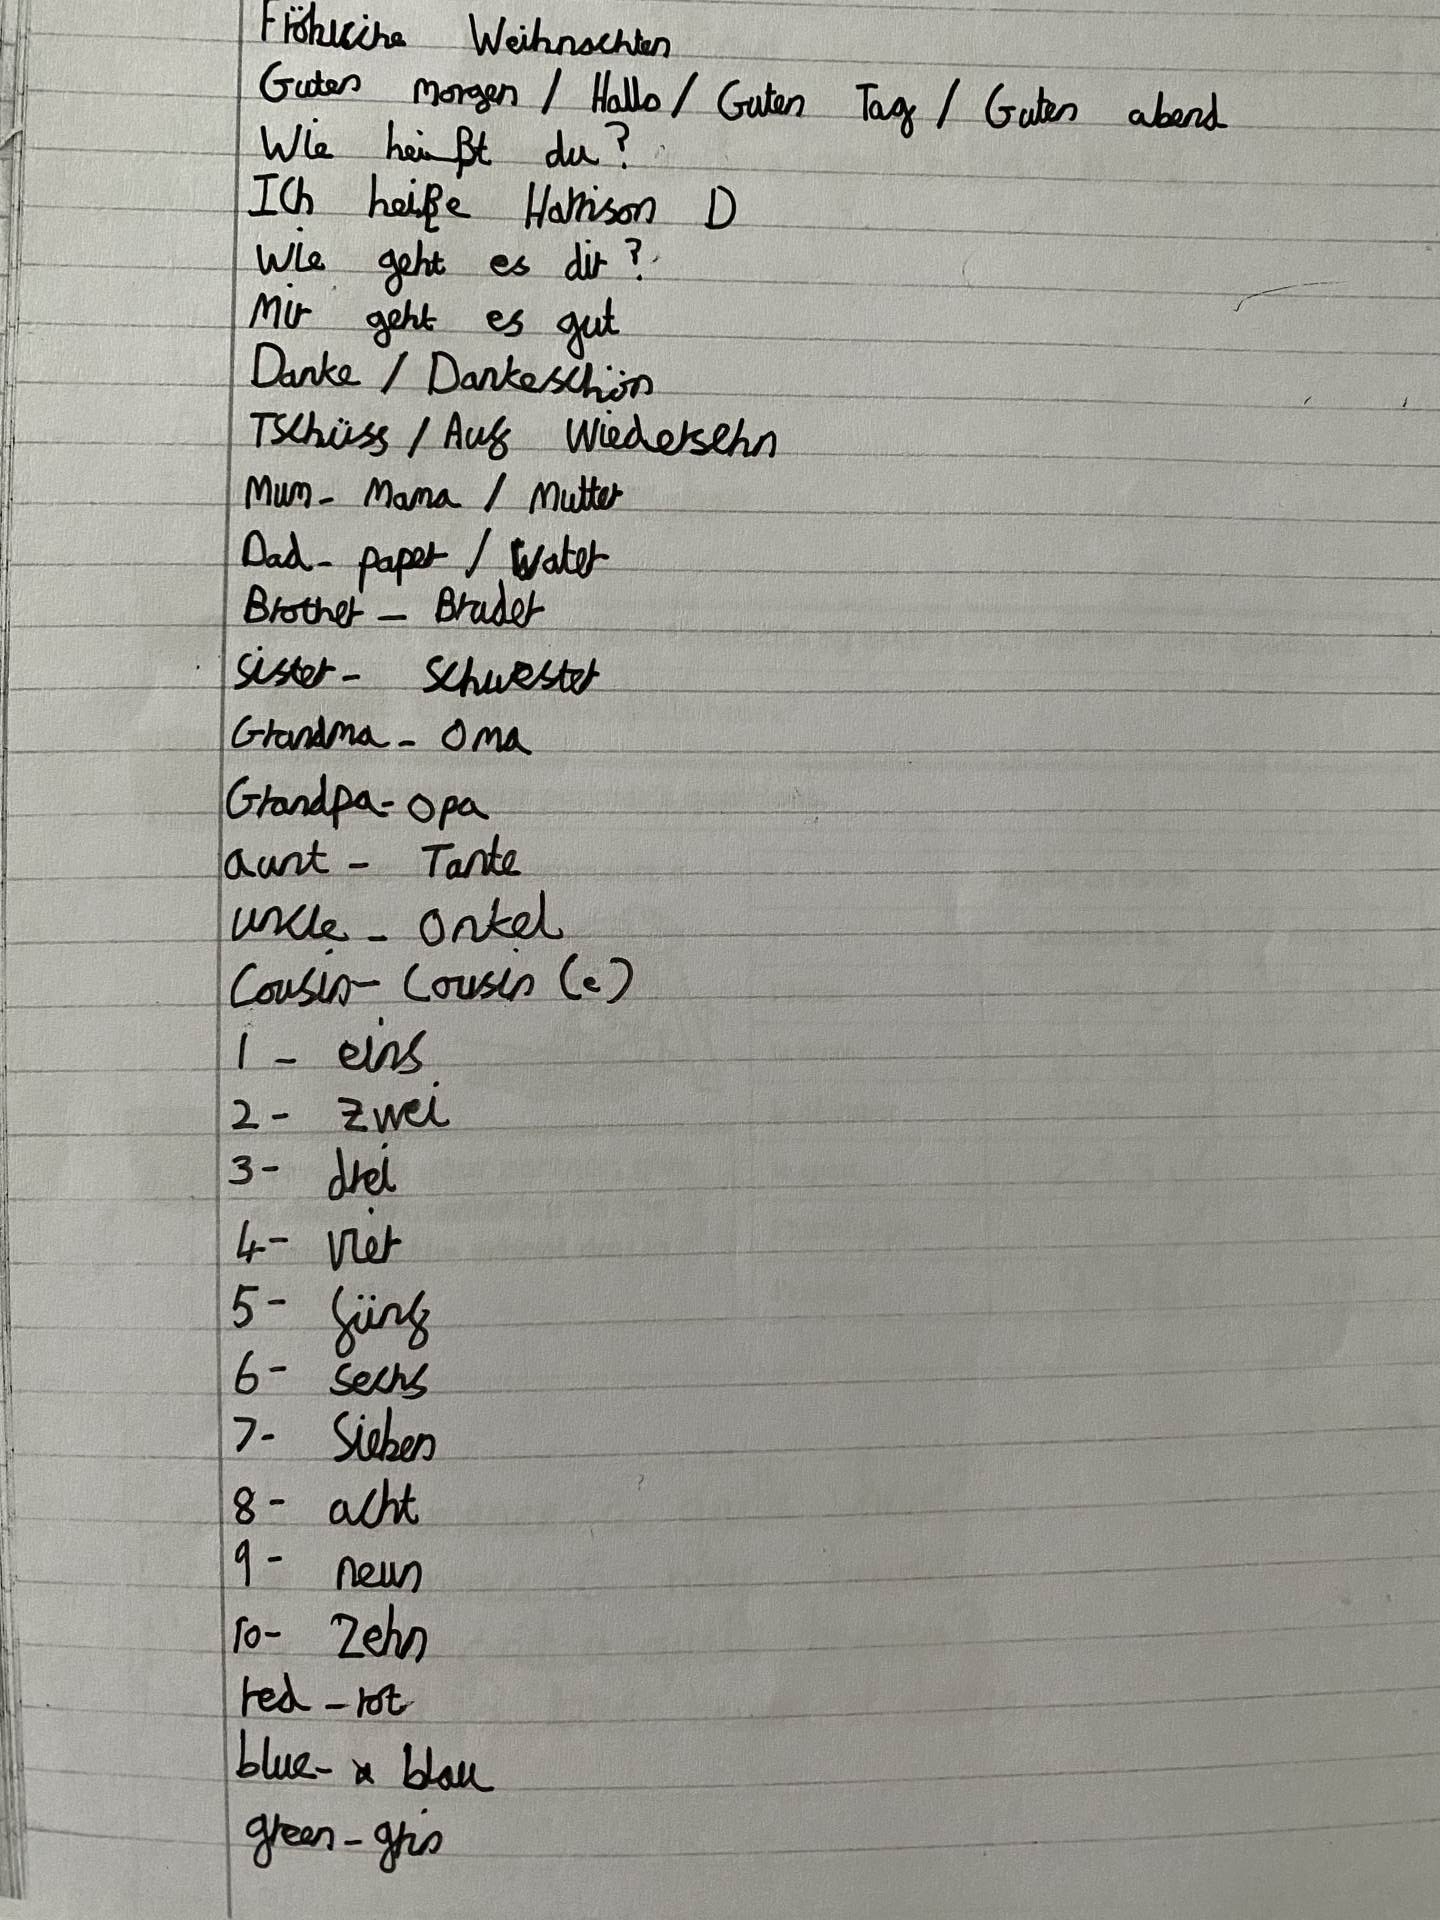 Fröhliche Weihnachten
Guten morgen / Hallo / Guten Tag / Guten abend
Wie heißt du?
Ich heiße Harrison D
Wie geht es dir?
Mir geht es gut
Danke / Dankeschön
Tschüss / Auf Wiedersehn
Mum - Mama / Mutter
Dad - paper / Vater
Brother - Bruder
Sister - Schwester
Grandma - Oma
Grandpa - Opa
aunt - Tante
uncle - Onkel
Cousin - Cousin (e)
1 - eins
2 - zwei
3 - drei
4 - vier
5 - fünf
6 - sechs
7 - Sieben
8 - acht
9 - neun
10 - Zehn
red - rot
blue - blau
green - grin